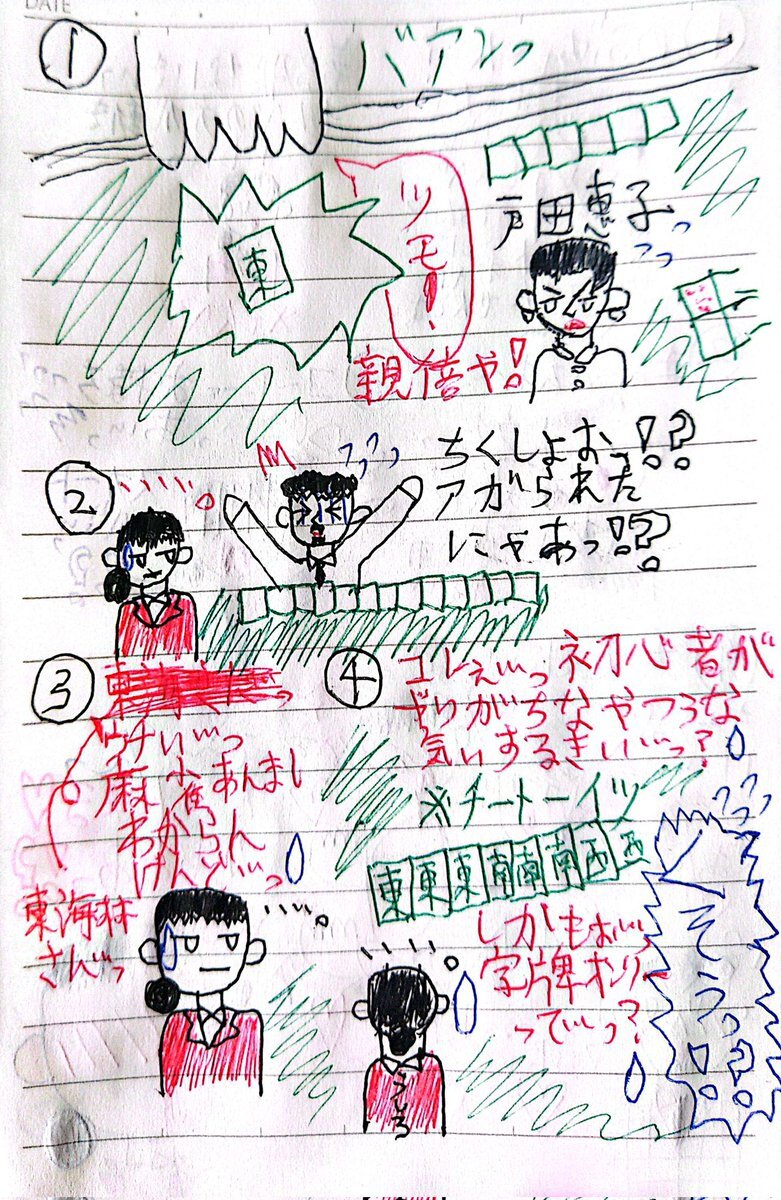 DATE
①
バアンっ
東
ツモ!
親倍や!
戸田恵子っ
②
ちくしょおっ!?
アガられた
にゃあっ!?
③
ウチぃ…っ
麻雀あんまし
わからん
けんど…っ
東海林
さん…っ
④
コレぇ…っ初心者が
やりがちなやつぅな
気ぃするきぃ…っ?
※チートーイツ
東東東南南南西西
しかもぉ…っ
字牌オンリー
って…っ?
くそうっ!?
うしろ